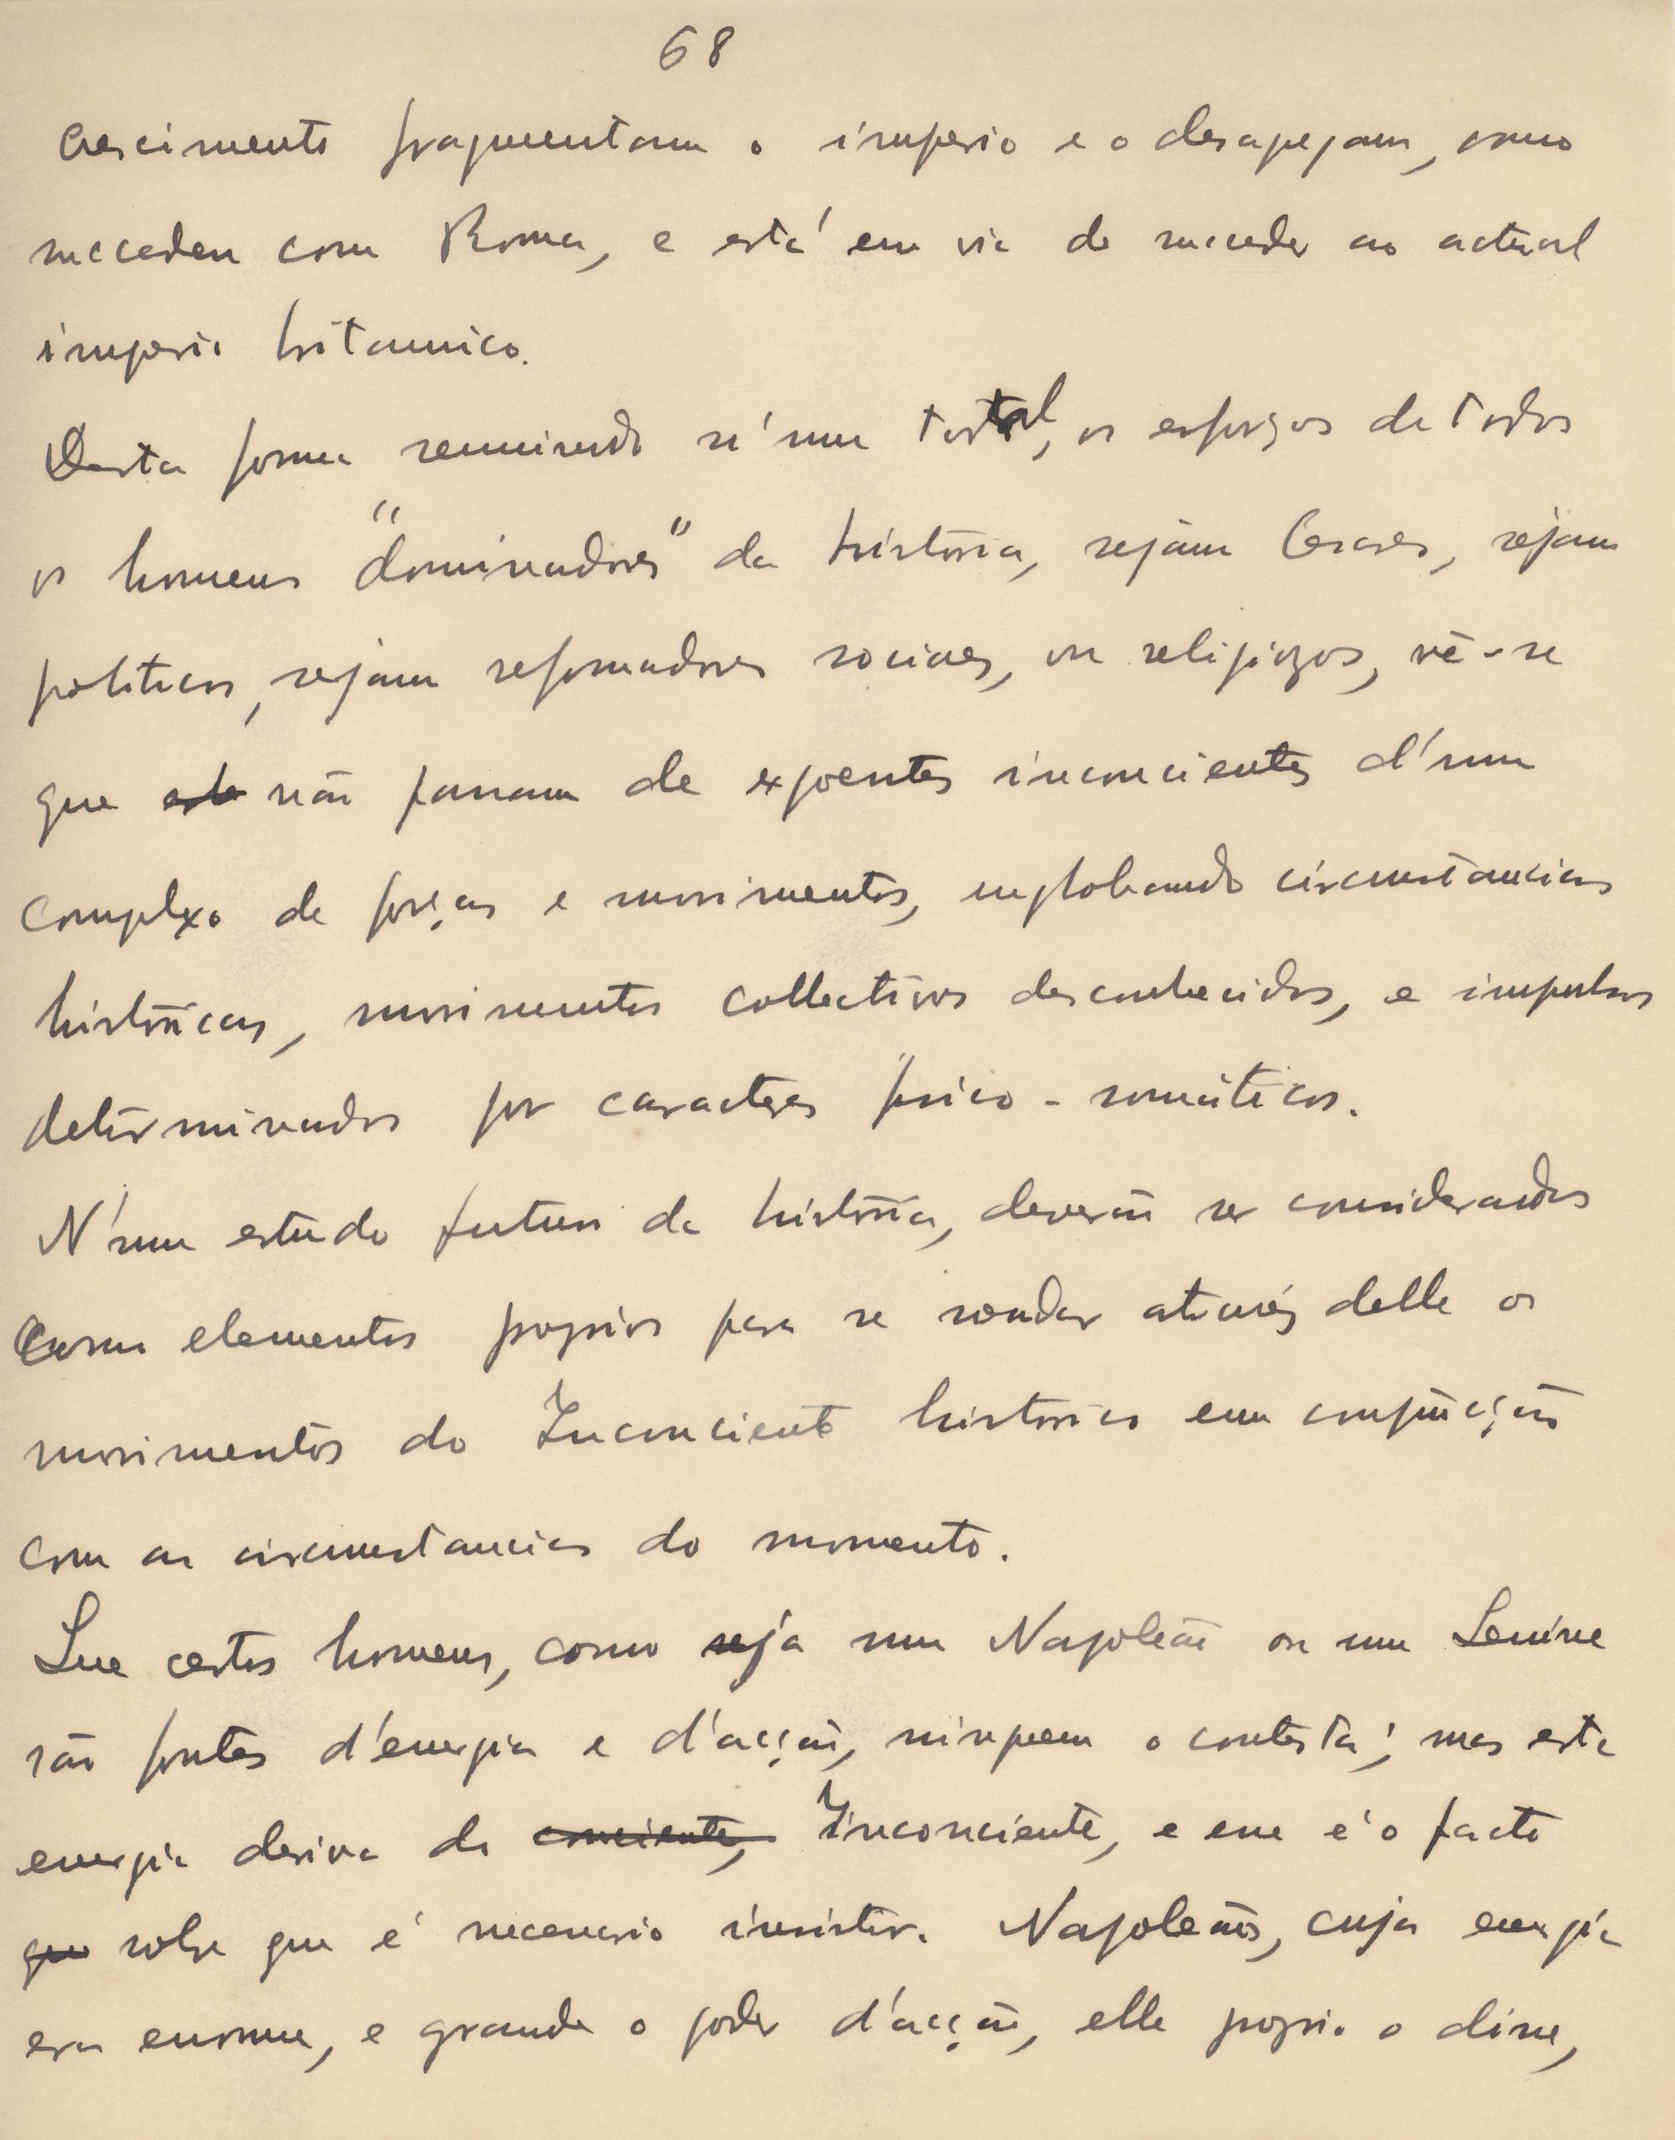 68
crescimento fragmentam o imperio e o desapegam, como
succedeu com Roma, e está em via de succeder ao actual
imperio britannico.
Desta forma reunindo n'um total, os esforços de todos
os homens "dominadores" da história, sejam Cesares, sejam
politicos, sejam reformadores sociaes, ou religiozos, vê-se
que não passam de expoentes inconcientes d'um
complexo de forças e movimentos, englobando circumstancias
históricas, movimentos collectivos desconhecidos, e impulsos
determinados por caracteres psico-somáticos.
N'um estudo futuro da história, deverão ser considerados
como elementos proprios para se sondar através delle os
movimentos do Inconciente historico em conjuncção
com as circumstancias do momento.
Que certos homens, como seja um Napoleão ou um Lenine
são fontes d'energia e d'acção, ninguem o contesta; mas esta
energia deriva do conciente, Inconciente, e esse é o facto
que sobre que é necessario insistir. Napoleão, cuja energia
era enorme, e grande o poder d'acção, elle proprio o disse,